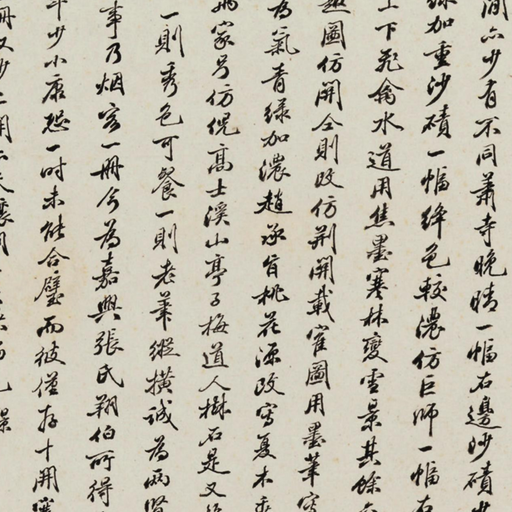 間亦少有不同蕭寺晚晴一幅右邊沙磧
綠加重沙磧一幅絳色較濃仿巨師一幅右
上下飛禽水道用焦墨寒林變雪景其餘
趣圖仿開仝則改仿荊開載崔圖用墨筆
為氣青綠加濃趙承旨桃花源改寫夏木垂
兩家另仿倪高士溪山亭子梅道人樹石是又
一則秀色可餐一則老筆縱橫誠為兩
事乃烟客一冊今為嘉興張氏翔伯所得
年少小康想一時未能合璧而彼僅存十開
冊又少二開